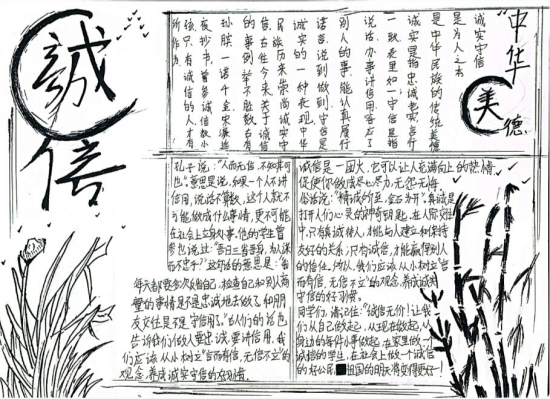 誠信
"中华
美德
诚实守信
是为人之本
是中华民族的传统美德
诚实是指忠诚老实言行
一致表里如一守信是指
说话办事讲信用答应了
别人的事,能认真履行
诺言说到做到,守信是
诚实的一种表现,中华
民族历来崇尚诚实守
信古往今来关于诚信
的事例数不胜数古有
孙膑一诺千金宋濂连
夜抄书,曾参诚信教小
孩,只有诚信的人才有
所作为
孔子说:“人而无信,不知其可
也。”意思是说,如果一个人不讲
信用,说话不算数,这个人就不
可能做成什么事情,更不可能
在社会上立身处事。他的学生曾
参也说过:“吾日三省吾身,为人谋
而不忠乎?”这句话的意思是:“我
每天都要多次反省自己,检查自己和别人商
量的事情是不是忠诚地去做了,和朋
友交往是不是守信用了。”古人们的话也
告诉我们做人要忠诚,要讲信用。我
们应该从小树立“言而有信,无信不立”的
观念,养成诚实守信的好习惯。
诚信是一团火,它可以让人充满向上的热情
促使你做成尽也尽力,无怨无悔。
俗话说:“精诚所至,金石为开。”真诚是
打开人们心灵的神奇钥匙。在人际交往
中,只有真诚待人,才能与人建立和保持
友好的关系;只有诚信,才能赢得别人
的信任。所以,我们应该从小树立“言
而有信,无信不立”的观念,养成诚实
守信的好习惯。
同学们,请记住:“诚信无价!让我
们从自己做起,从现在做起,从
身边的每件小事做起,在家里做一个
诚信的学生,在社会上做一个诚信
的好公民,祖国的明天将变得更好!